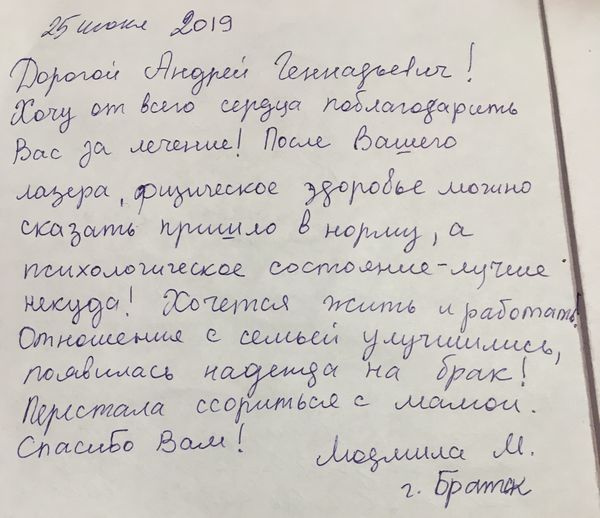 25 июля 2019
Дорогой Андрей Геннадьевич!
Хочу от всего сердца поблагодарить
Вас за лечение! После Вашего
лазера, физическое здоровье можно
сказать пришло в норму, а
психологическое состояние - лучше
некуда! Хочется жить и работать!
Отношения с семьей улучшились,
появилась надежда на брак!
Перестала ссориться с мамой.
Спасибо Вам!
Людмила М.
г. Братск